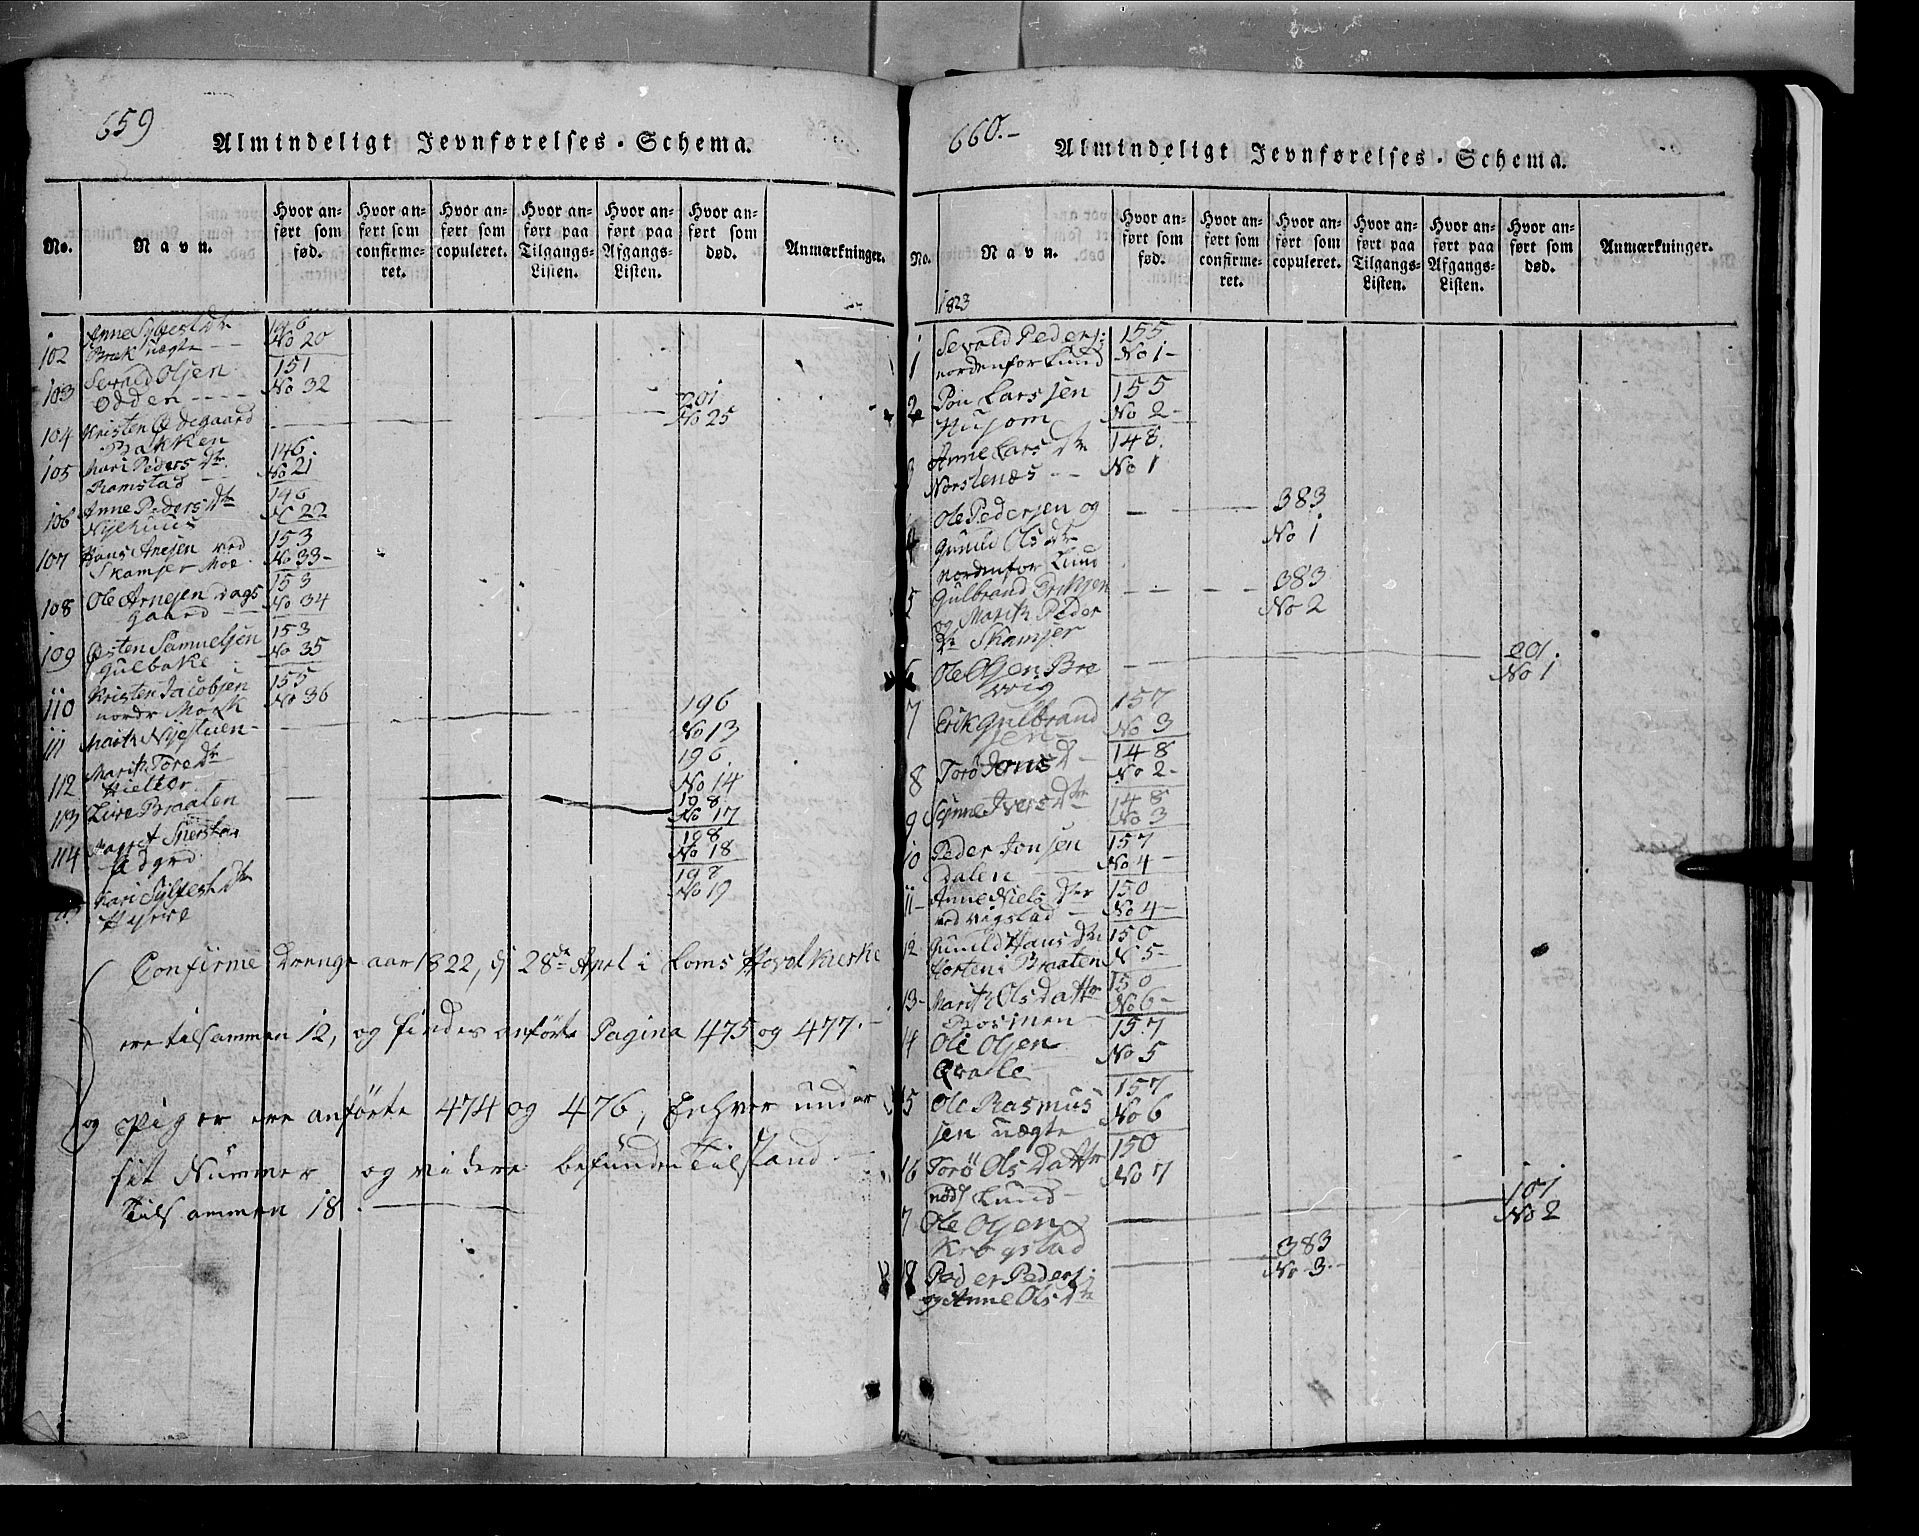 659
Almindeligt Jevnførelses-Schema.
No.
Navn.
Hvor anført som født.
Hvor anført som confirmeret.
Hvor anført som copuleret.
Hvor anført paa Tilgangs-Listen.
Hvor anført paa Afgangs-Listen.
Hvor anført som død.
Anmærkninger.
102 Anne Sylfestdtr 146
Bræk uægte No 20
103 Sewald Olsen 151
Odden No 32
104 Kristen Ødegaard 201
Bakken No 25
105 Mari Peders Dtr 146
Ramstad No 21
106 Anne Peders Dtr 146
Nyehuus No 22
107 Hans Anesen ved 153
Skamser Moe No 33
108 Ole Arnesen Dags 153
gaard No 34
109 Østen Samuelsen 153
Gulbake No 35
110 Kristen Jacobsen 155
nordr Mork No 36
111 Marit Nyestuen 196
No 13
112 Marit Tore Dtr 196
Hielter No 14
113 Live Braaten 198
No 17
114 198
No 18
Kari Sylfest Dtr 198
No 19
Confirme Drenge aar 1822, d 28de Aprl i Loms Hovetkierke
ere tilsammen 12, og findes anførte Pagina 475 og 477.
og Piger ere anførte 474 og 476, Enhver under
sit Nummer og videre befundne Tilstand
Tilsammen 18.
660.
Almindeligt Jevnførelses-Schema.
No.
Navn.
Hvor anført som fød.
Hvor anført som confirmeret.
Hvor anført som copuleret.
Hvor anført paa Tilgangs-Listen.
Hvor anført paa Afgangs-Listen.
Hvor anført som død.
Anmærkninger.
1823
1 Sevald Peders: 155
nordenfor Lund No 1
2 Poul Larssen 155
No 2
3 Anne Lars Dtr 148
Norstenæs No 1
4 Ole Pedersen og 383
Gunild Ols Dtr No 1
nordenfor Lund
5 Gulbrand Eriksen 383
og Marit Peder No 2
Dtr Skamser
6 Ole Olsen Bre 201
vig No 1
7 Erik Gulbrand 157
sen No 3
8 Torø Jons D 148
No 2
9 Synne Ivers Dtr 148
No 3
10 Peder Jonsen 157
Dalen No 4
11 Anne Niels Dtr 150
ved Vigstad No 4
12 Gunild Hans Dtr 150
Horten i Braaten No 5
13 Marit Olsdatter 150
No 6
14 Ole Olsen 157
Qvalle No 5
15 Ole Rasmus 157
sen uægte No 6
16 Torø Olsdatter 150
Lund No 7
17 Ole Olsen 101
Krogstad No 2
18 Peder Peders: 383
og Anne Ols Dtr No 3